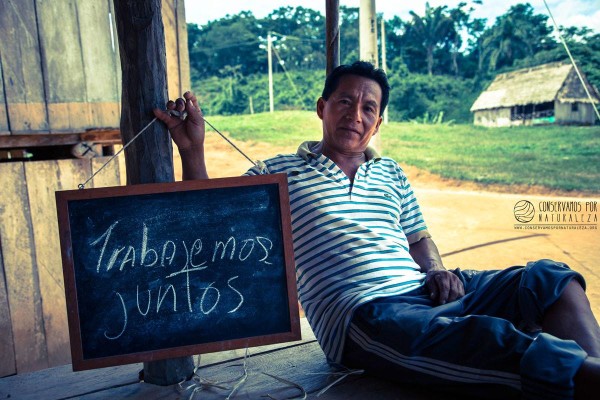 Trabajemos
juntos
CONSERVAMOS POR
NATURALEZA
WWW.CONSERVAMOSPORNATURALEZA.ORG